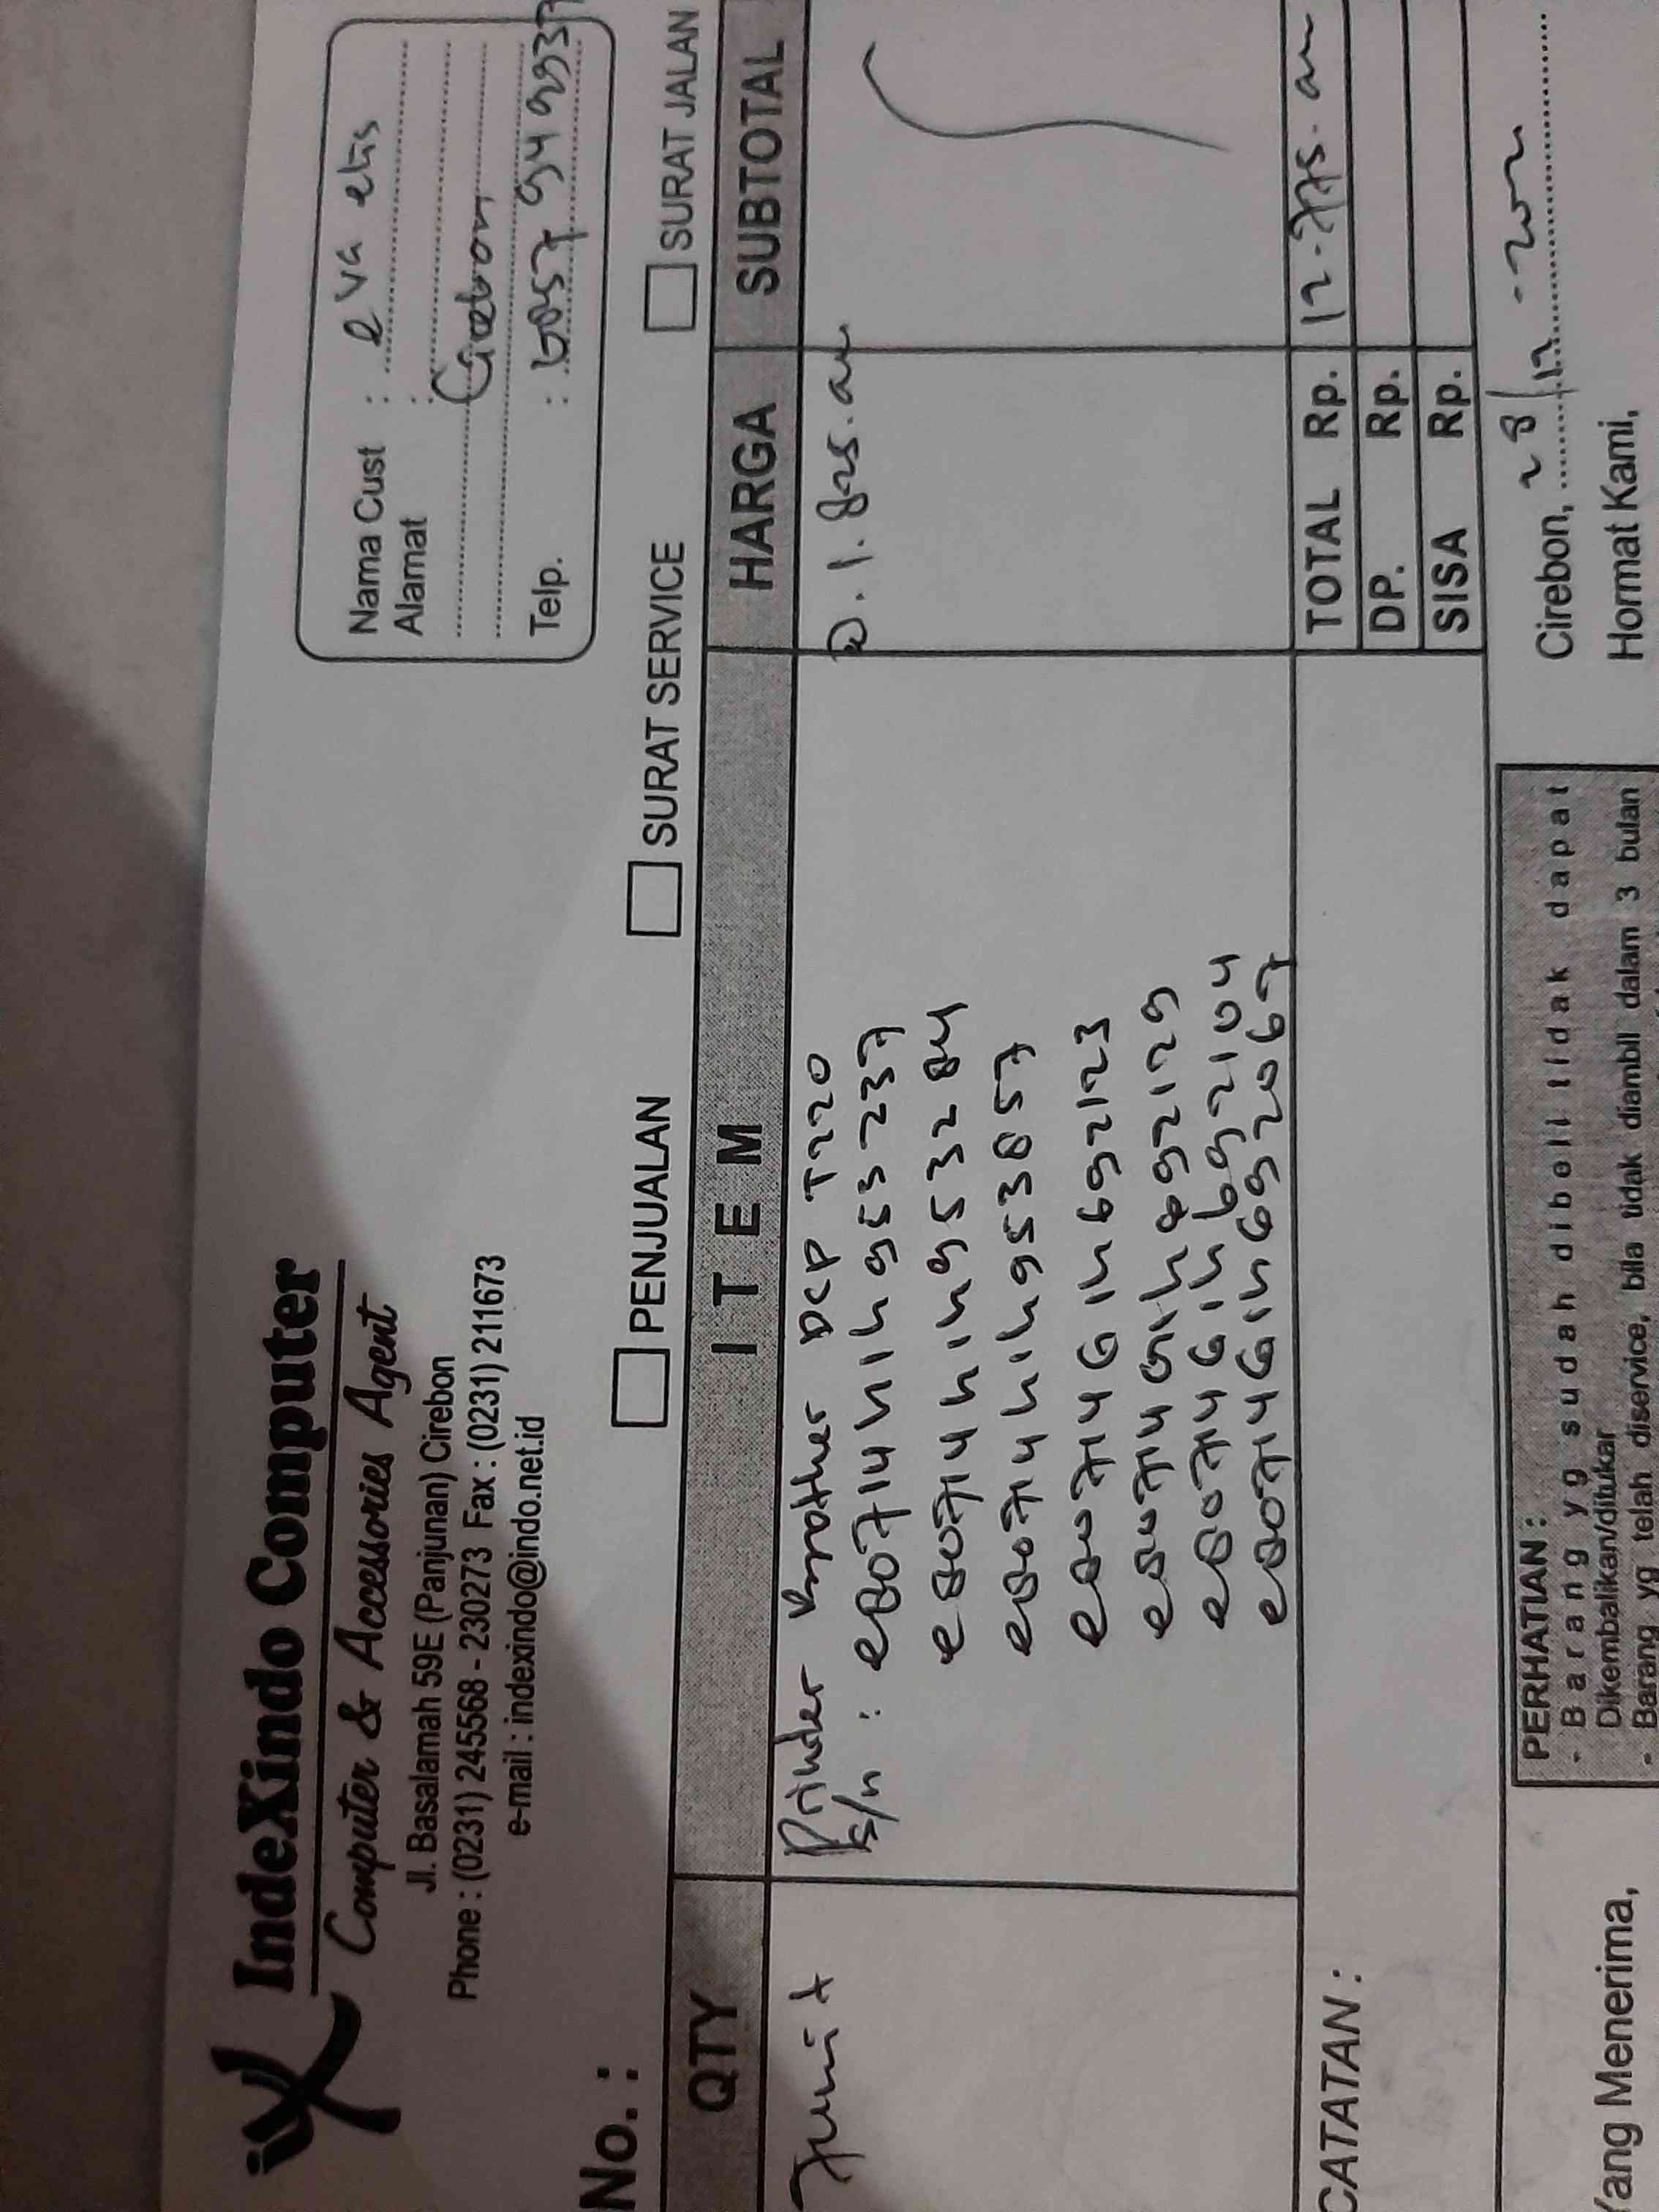 IndeXindo Computer
Computer & Accessories Agent
Jl. Basalamah 59E (Panjunan) Cirebon
Phone : (0231) 245568 - 230273 Fax : (0231) 211673
e-mail : indexindo@indo.net.id
Nama Cust : eva elis
Alamat :
Cirebon
Telp. :
No. :
PENJUALAN SURAT SERVICE SURAT JALAN
QTY ITEM HARGA SUBTOTAL
7 unit Printer Brother DCP T220 @. 1.825.000
s/n : E80714H1H953237
E80714H1H953284
E80714H1H953857
E80714G1H692123
E80714G1H692129
E80714G1H692104
E80714G1H692067
CATATAN :
TOTAL Rp. 12.775.000
DP. Rp.
SISA Rp.
PERHATIAN :
- Barang yg sudah dibeli tidak dapat
Dikembalikan/ditukar
- Barang yg telah diservice, bila tidak diambil dalam 3 bulan
Cirebon, 28/12 -
Yang Menerima,
Hormat Kami,